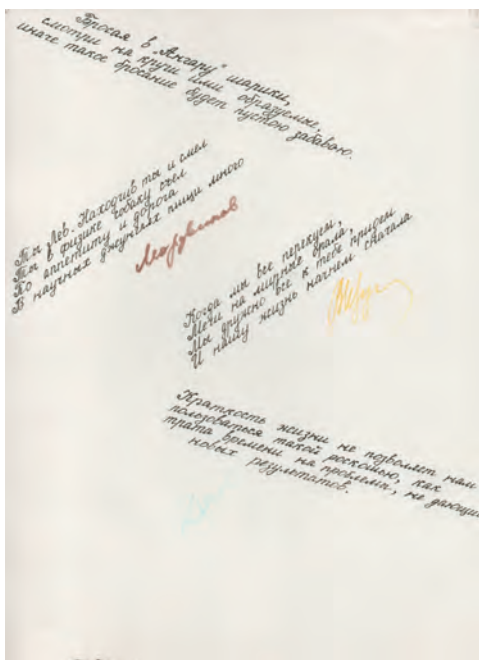 Бросая в „Ангару" шарики,
смотри на кручи ими образуемые,
иначе такое бросание будет пустою забавою.
Ты Лев. Находчив ты и смел
Ты в физике собаку съел
По аппетиту и дорога
В научных джунглях пищи много
Мордвинов
Когда мы все перекуем,
Мечи на мирные орала,
Мы дружно все к тебе придем
И нашу жизнь начнем сначала
Краткость жизни не позволяет нам
пользоваться такой роскошью, как
трата времени на проблемы, не дающие
новых результатов.